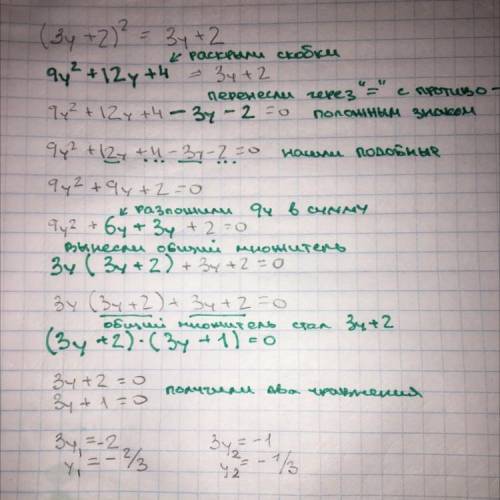 (3y+2)² = 3y+2
раскрыли скобки
9y²+12y+4 = 3y+2
перенесли через "=" с противо-
9y²+12y+4-3y-2=0 положным знаком
9y²+12y+4-3y-2=0 нашли подобные
9y²+9y+2=0
разложили 9y в сумму
9y²+6y+3y+2=0
вынесли общий множитель
3y(3y+2)+3y+2=0
3y(3y+2)+3y+2=0
общий множитель стал 3y+2
(3y+2)·(3y+1)=0
3y+2=0
3y+1=0 получили два уравнения
3y₁=-2 3y₂=-1
y₁=-2/3 y₂=-1/3